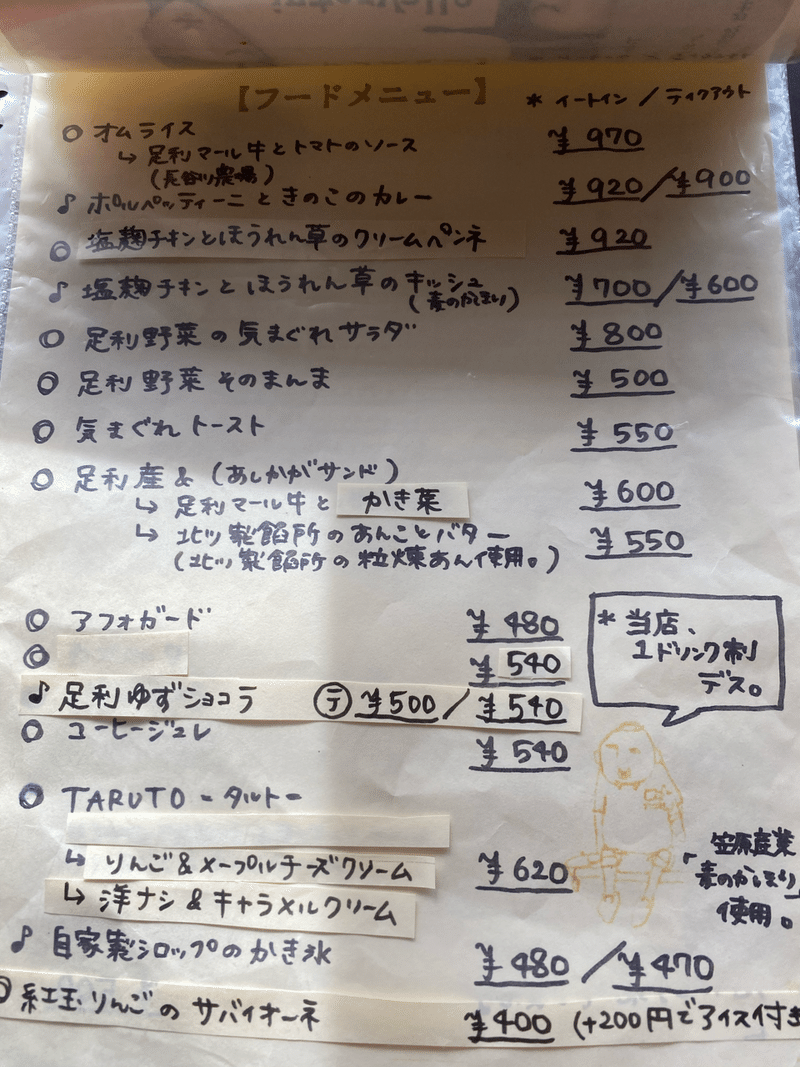 【フードメニュー】 * イートイン / テイクアウト
◎ オムライス ¥970
↳ 足利マール牛とトマトのソース
(長谷川農場)
♪ ポルペッティーニときのこのカレー ¥920/¥900
◎ 塩麹チキンとほうれん草のクリームペンネ ¥920
♪ 塩麹チキンとほうれん草のキッシュ ¥700/¥600
(麦のかほり)
◎ 足利野菜の気まぐれサラダ ¥800
◎ 足利野菜そのまんま ¥500
◎ 気まぐれトースト ¥550
◎ 足利産& (あしかがサンド)
↳ 足利マール牛と かき菜 ¥600
↳ 北ツ製餡所のあんことバター ¥550
(北ツ製餡所の粒煉あん使用。)
◎ アフォガード ¥480
◎ ¥540
♪ 足利ゆずショコラ テ ¥500/¥540
◎ コーヒージュレ ¥540
* 当店、
1ドリンク制
デス。
◎ TARUTO －タルト－
↳ りんご&メープルチーズクリーム ¥620
↳ 洋ナシ&キャラメルクリーム
笠原産業
「麦のかほり」
使用。
♪ 自家製シロップのかき氷 ¥480/¥470
◎ 紅玉りんごのサバイオーネ ¥400 (+200円でアイス付き